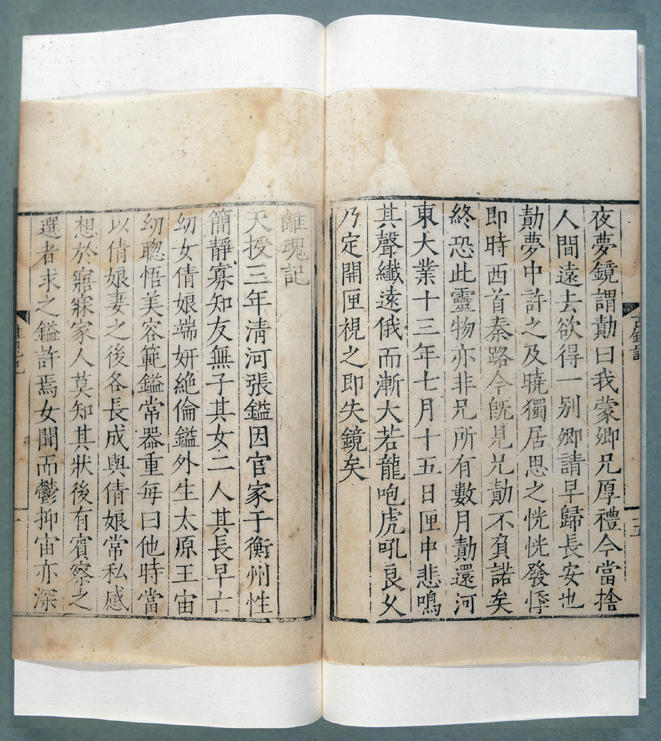 夜夢鏡謂勣曰我蒙卿兄厚禮今當捨
人間遠去欲得一別卿請早歸長安也
勣夢中許之及曉獨居思之恍恍發悸
即時西首秦路今旣見兄勣不負諾矣
終恐此靈物亦非兄所有數月勣還河
東大業十三年七月十五日匣中悲鳴
其聲纖遠俄而漸大若龍咆虎吼良久
乃定開匣視之即失鏡矣
古鏡記
十五
離魂記
天授三年清河張鎰因官家于衡州性
簡靜寡知友無子其女二人其長早亡
幼女倩娘端妍絶倫鎰外生太原王宙
幼聰悟美容範鎰常器重每曰他時當
以倩娘妻之後各長成與倩娘常私感
想於寤寐家人莫知其狀後有賓寮之
選者求之鎰許焉女聞而鬱抑宙亦深